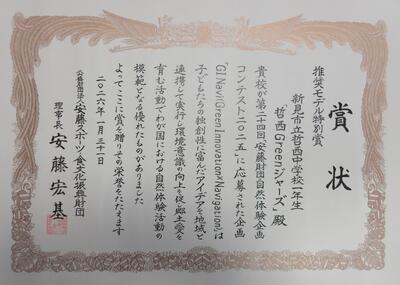 賞状
推奨モデル特別賞
新見市立哲西中学校一年生
哲西Greenジャーズ 殿
貴校が第二十四回、安藤財団自然体験企画
コンテスト二〇二五」に応募された企画
「GI Navi(Green Innovation Navigation)」は
子どもたちの独創性に富んだアイデアを地域と
連携して実行し環境意識の向上を促し郷土愛を
育む活動でわが国における自然体験活動の
模範となる優れたものがありました
よってここに賞を贈りその栄誉をたたえます
二〇二六年一月三十一日
公益財団法人安藤スポーツ・食文化振興財団
理事長 安藤宏基